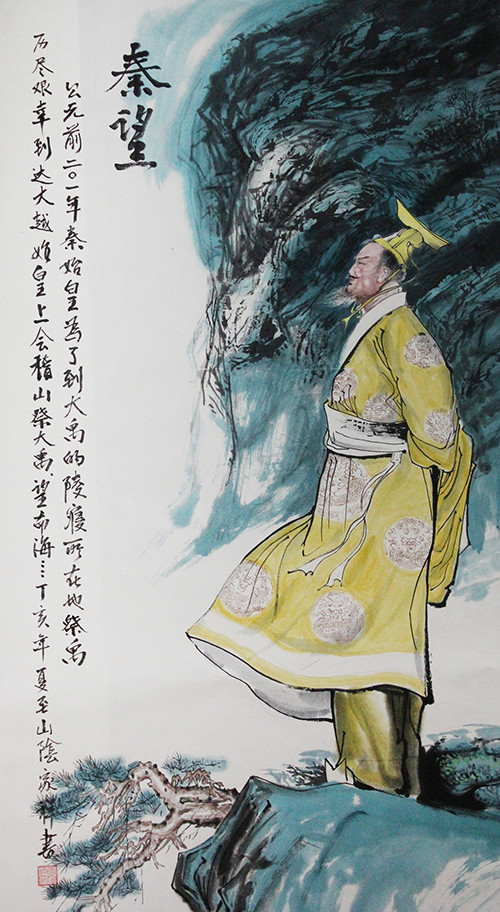 秦望
公元前二〇一年秦始皇为了到大禹的陵寝所在地祭禹
历尽艰辛到达大越始皇上会稽山祭大禹、望南海…丁亥年夏至山陰家祥書